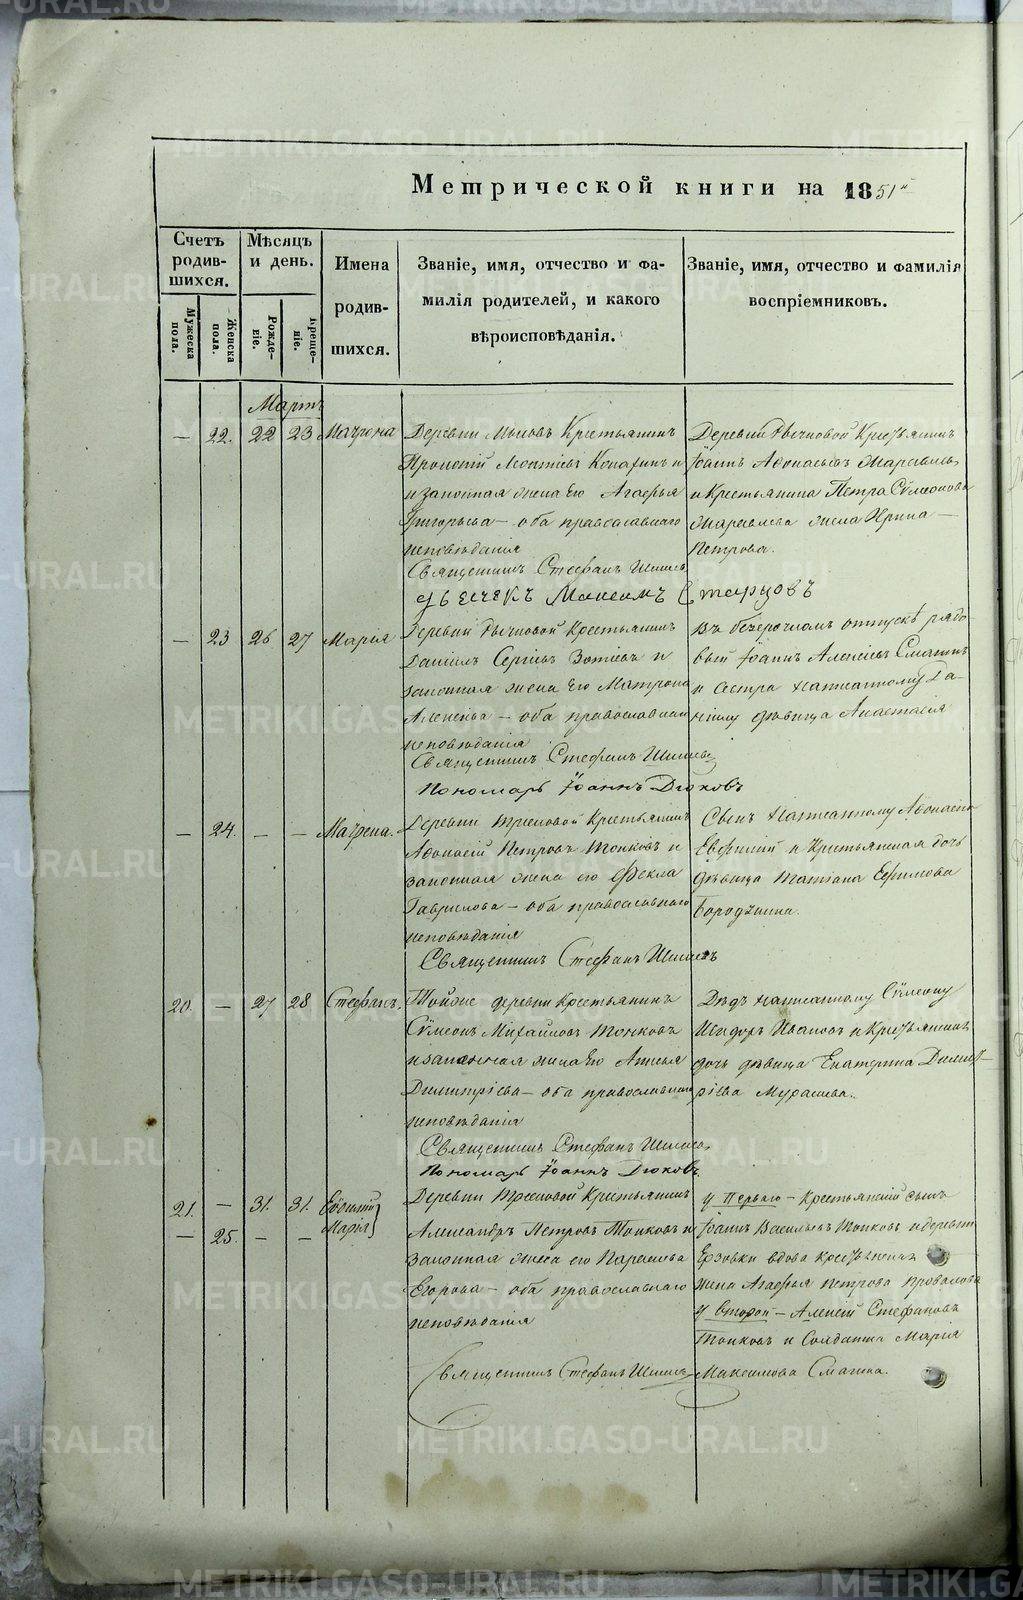 Метрической книги на 1851й
Счетъ родив-шихся.
Мужеска пола.
Женска пола.
Мѣсяцъ и день.
Рожде-ніе.
Креще-ніе.
Имена
родив-
шихся.
Званіе, имя, отчество и фа-
милія родителей, и какого
вѣроисповѣданія.
Званіе, имя, отчество и фамилія
воспріемниковъ.
Мартъ
— 22. 22 23 Матрона
Деревни Крестьянинъ
Леонтіевъ
и законная жена его Агафья
Григорьева — оба православнаго
исповѣданія
Священникъ Стефанъ
Дьячекъ Максимъ Старцовъ
Деревни Крестьянинъ
Іоаннъ Афонасьевъ
и Крестьянина Петра Сѵмеонова
жена Ирина —
Петрова.
— 23 26 27 Марія
Деревни Крестьянинъ
Даніилъ Сергіевъ Зотѣевъ и
законная жена его Матрона
Алексѣева — оба православнаго
исповѣданія
Священникъ Стефанъ
Пономарь Іоаннъ Дюковъ
Въ безсрочномъ отпускѣ рядо
вый Іоаннъ Алексѣевъ Смагинъ
и сестра написанному Да-
ніилу дѣвица Анастасія
— 24. — — Матрена.
Деревни Крестьянинъ
Афонасій Петровъ Топковъ и
законная жена его Фекла
Гаврилова — оба православнаго
исповѣданія
Священникъ Стефанъ
Сынъ написанному Афонасію
Евфимій и Крестьянская дочь
дѣвица Татіана Ефимова
20. — 27 28 Стефанъ.
Тойже деревни крестьянинъ
Сѵмеонъ Михайловъ Топковъ
и законная жена его Анисья
Димитріева — оба православнаго
исповѣданія
Священникъ Стефанъ
Пономарь Іоаннъ Дюковъ
Дѣдъ написанному Сѵмеону
Исидоръ Ивановъ и Крестьянина
дочь дѣвица Екатерина Димит-
ріева Мурашева.
21. — 31. 31. Евѳимій
— 25. — — Марія
Деревни Крестьянинъ
Александръ Петровъ Топковъ и
законная жена его Параскева
Егорова — оба православнаго
исповѣданія
Священникъ Стефанъ
у перваго — Крестьянскій сынъ
Іоаннъ Васильевъ Топковъ и деревни
Ерзовки вдова крестьянская
жена Агафья Петрова Провалова
у второй — Алексій Стефановъ
Топковъ и Солдатка Марія
Максимова Смагина.
METRIKI.GASO-URAL.RU